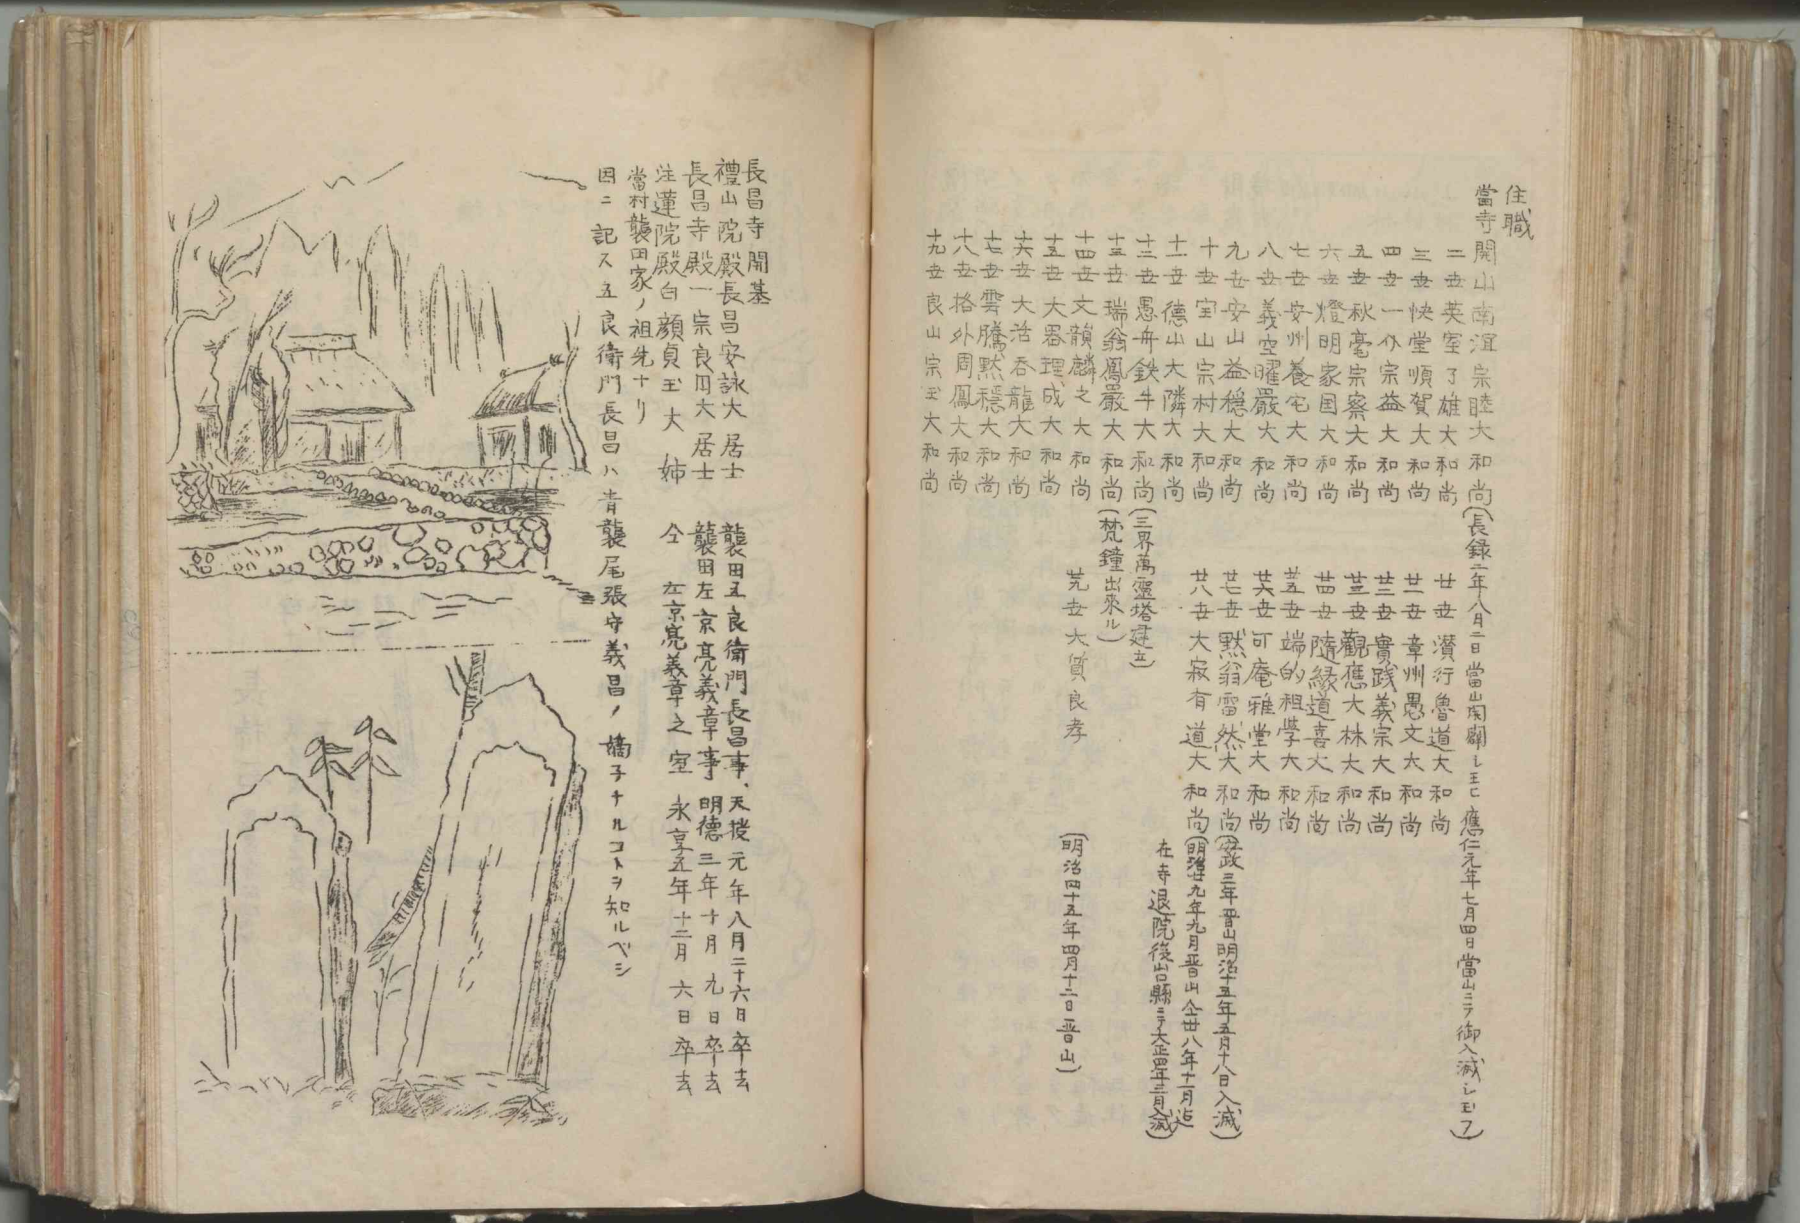 住職
當寺開山南溟宗睦大和尚(長録二年八月二日當山開闢シ玉ヒ應仁元年七月四日當山ニテ御入滅シ玉フ)
二世英室了雄大和尚
三世快堂順賀大和尚
四世一外宗益大和尚
五世秋毫宗察大和尚
六世燈明家国大和尚
七世安州養宅大和尚
八世義空曜嚴大和尚
九世安山益穏大和尚
十世宝山宗村大和尚
十一世德山大隣大和尚
十二世愚舟鉄牛大和尚(三界萬靈塔建立)
十三世瑞翁鳳嚴大和尚(梵鐘出來ル)
十四世文韻麟之大和尚
十五世大器理成大和尚
十六世大活呑龍大和尚
十七世雲騰黙穏大和尚
十八世格外周鳳大和尚
十九世良山宗玉大和尚
廿世濳行魯道大和尚
廿一世章州愚文大和尚
廿二世實践義宗大和尚
廿三世觀應大林大和尚
廿四世隨緣道喜大和尚
廿五世端的祖学大和尚
廿六世可庵雅堂大和尚
廿七世黙翁雷然大和尚(安政三年晋山明治十五年五月十八日入滅)
廿八世大寂有道大和尚(明治廿九年九月晋山仝卅八年十一月迠
在寺退院後山口縣ニテ大正四年二月入滅)
廿九世大質良孝(明治四十五年四月十二日晋山)
長昌寺開基
禮山院殿長昌安詠大居士 襲田五良衛門長昌事、天授元年八月二十六日卒去
長昌寺殿一宗良円大居士 襲田左京亮義章事 明德三年十月九日卒去
注蓮院殿白顔貞玉大姉 仝 左京亮義章之室 永享五年十二月六日卒去
當村襲田家ノ祖先ナリ
因ニ記ス五良衛門長昌ハ青襲尾張守義昌ノ嫡子ナルコトヲ知ルベシ